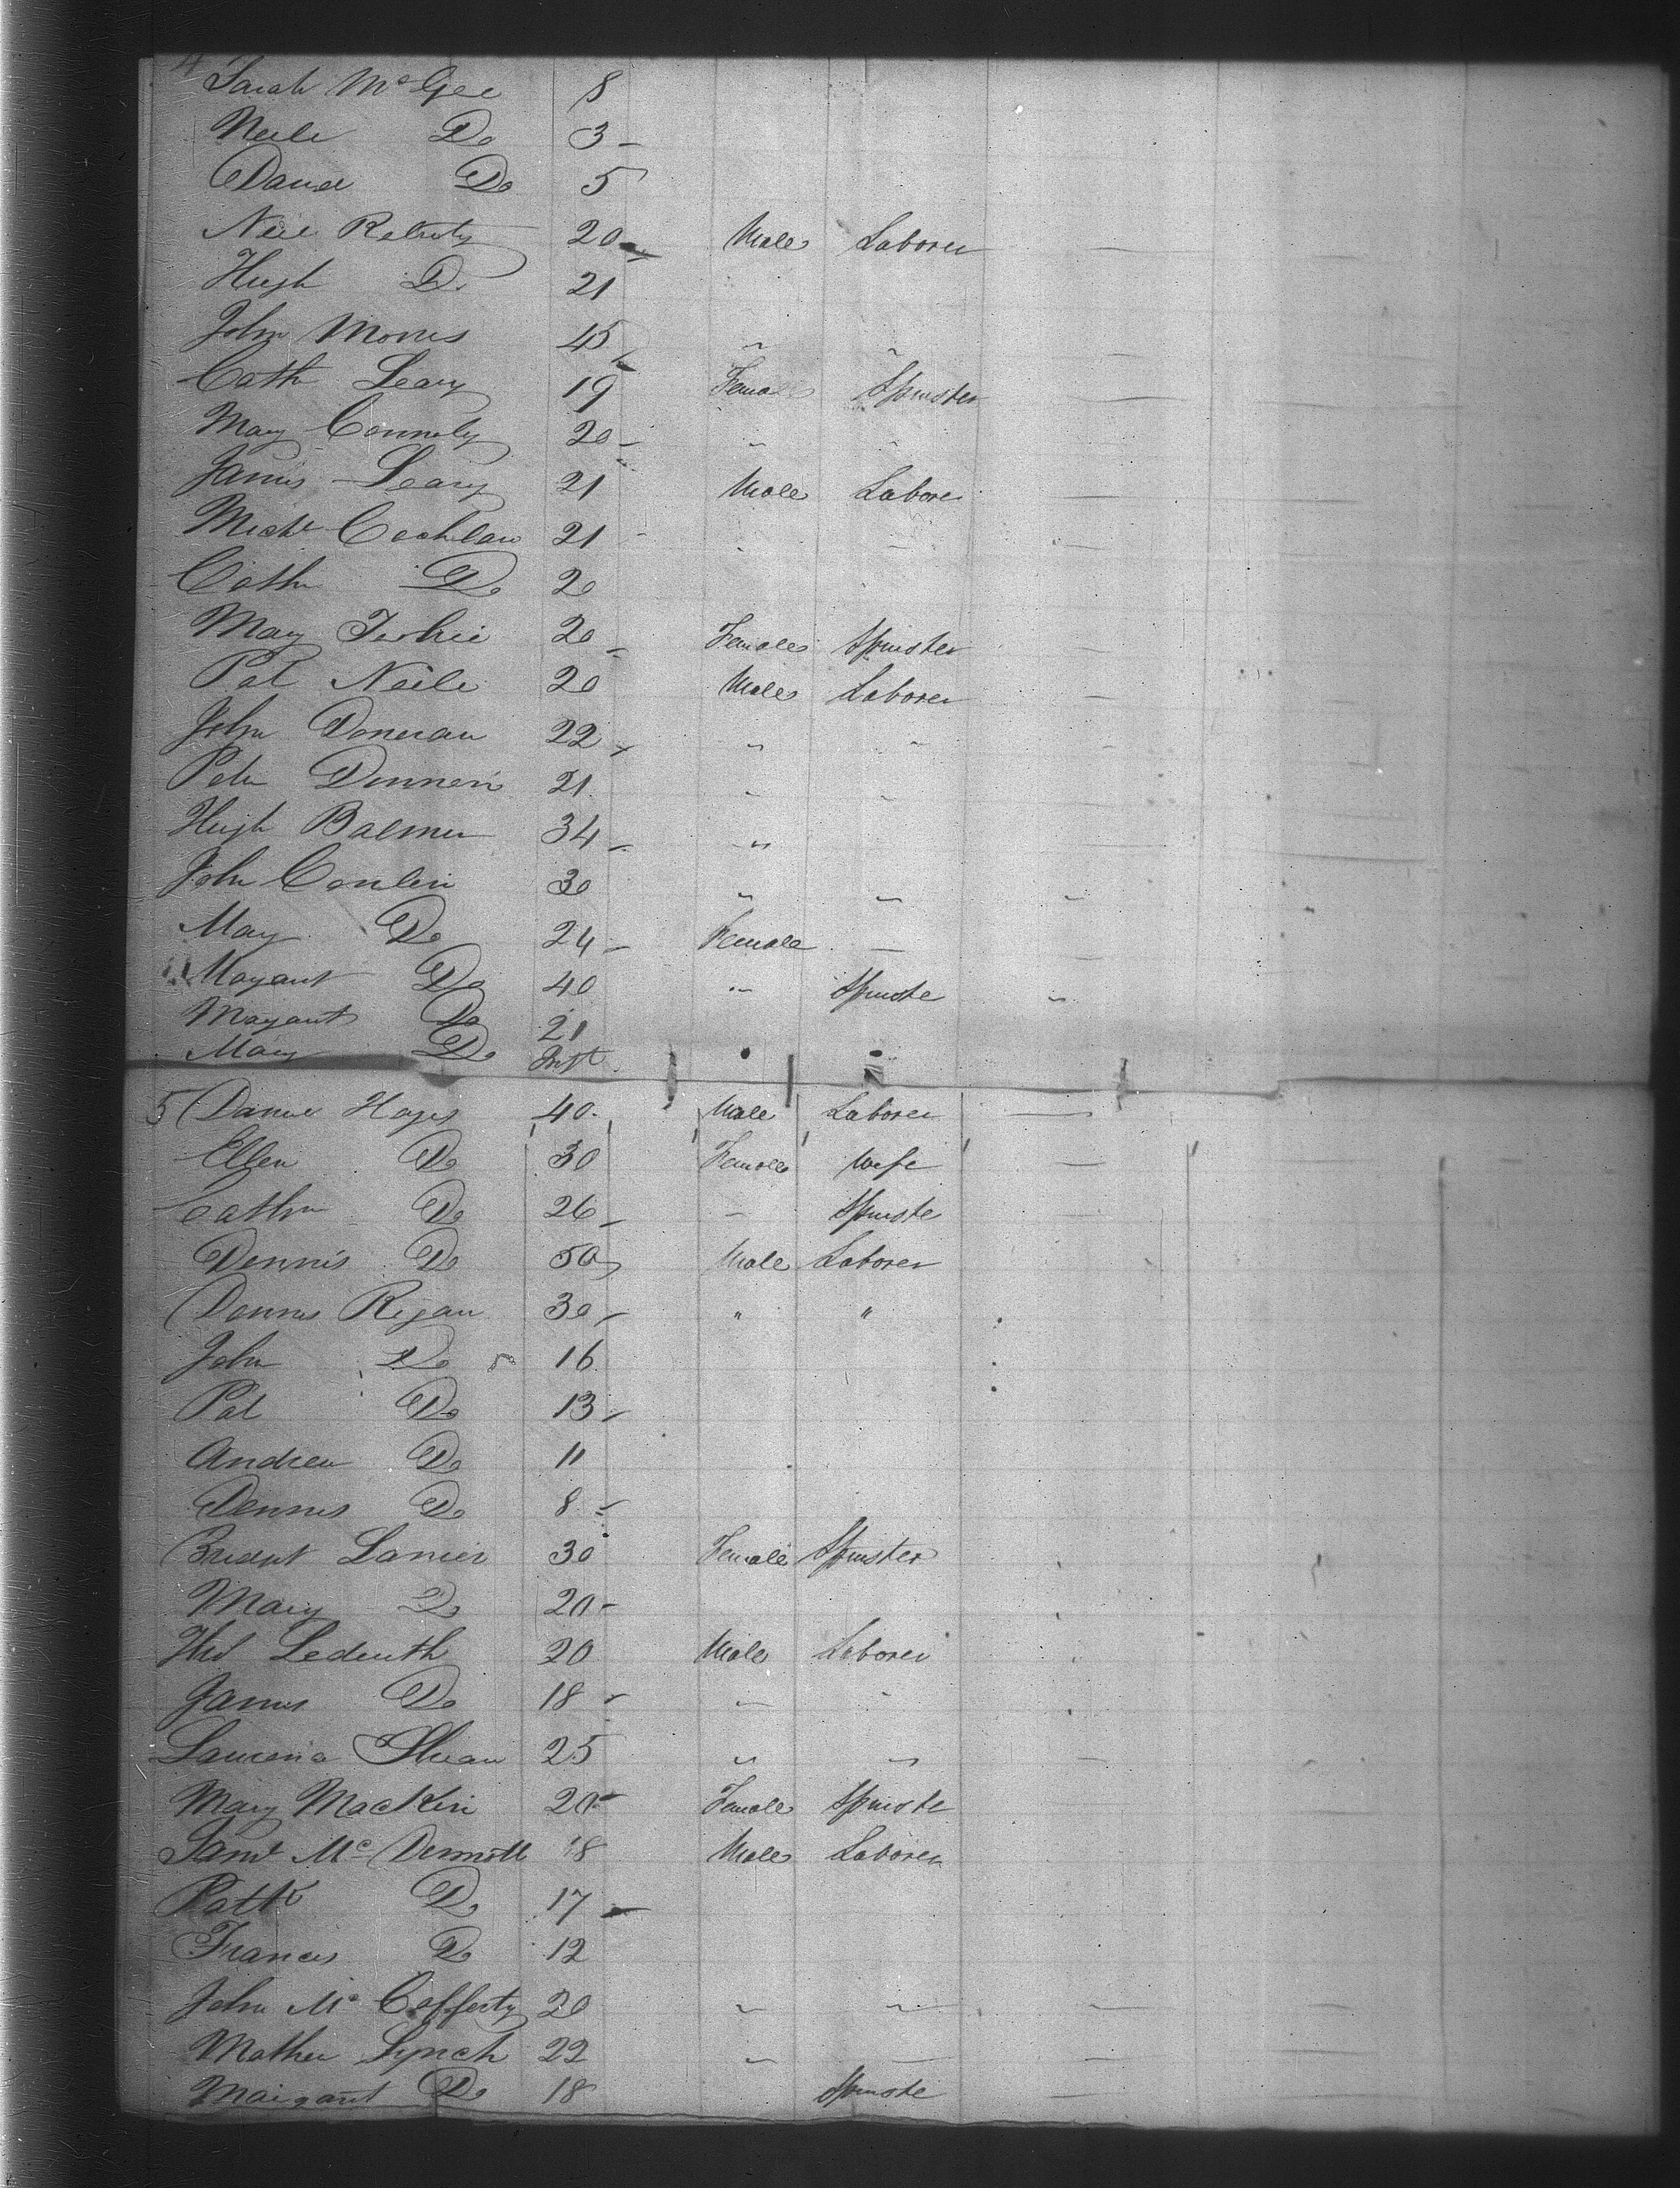 4
Sarah McGee 8
Neile Do 3
Daniel Do 5
Neil 20 Male Laborer
Hugh Do 21
John Morris 45 " "
Cath Leary 19 Female Spinster
Mary Connoly 20 " "
James Leary 21 Male Laborer
Michl Coghlan 21
Cath Do 20
Mary 20 Female Spinster
Pat Neile 20 Male Laborer
John Doneran 22 " "
Peter Donneri 21 " "
Hugh Balmer 34 "
John Conlin 30 " " "
Mary Do 24 Female
Margaret Do 40 " Spinster "
Margaret Do 21
Mary Do Inft
5 Daniel Hayes 40 Male Laborer
Ellen Do 30 Female Wife
Cathn Do 26 Spinster
Dennis Do 50 Male Laborer
Dennis Regan 30 " "
John Do 16
Pat Do 13
Andrew Do 11
Dennis Do 8
Bridget Lanier 30 Female Spinster
Mary Do 20
Thos 20 Male Laborer
James Do 18 " "
25 " "
Mary Mackin 20 Female Spinster
Saml McDermott 18 Male Laborer
Pattk Do 17
Francis Do 12
John McCafferty 20 " "
Mathew Lynch 22 "
Margaret Do 18 Spinster